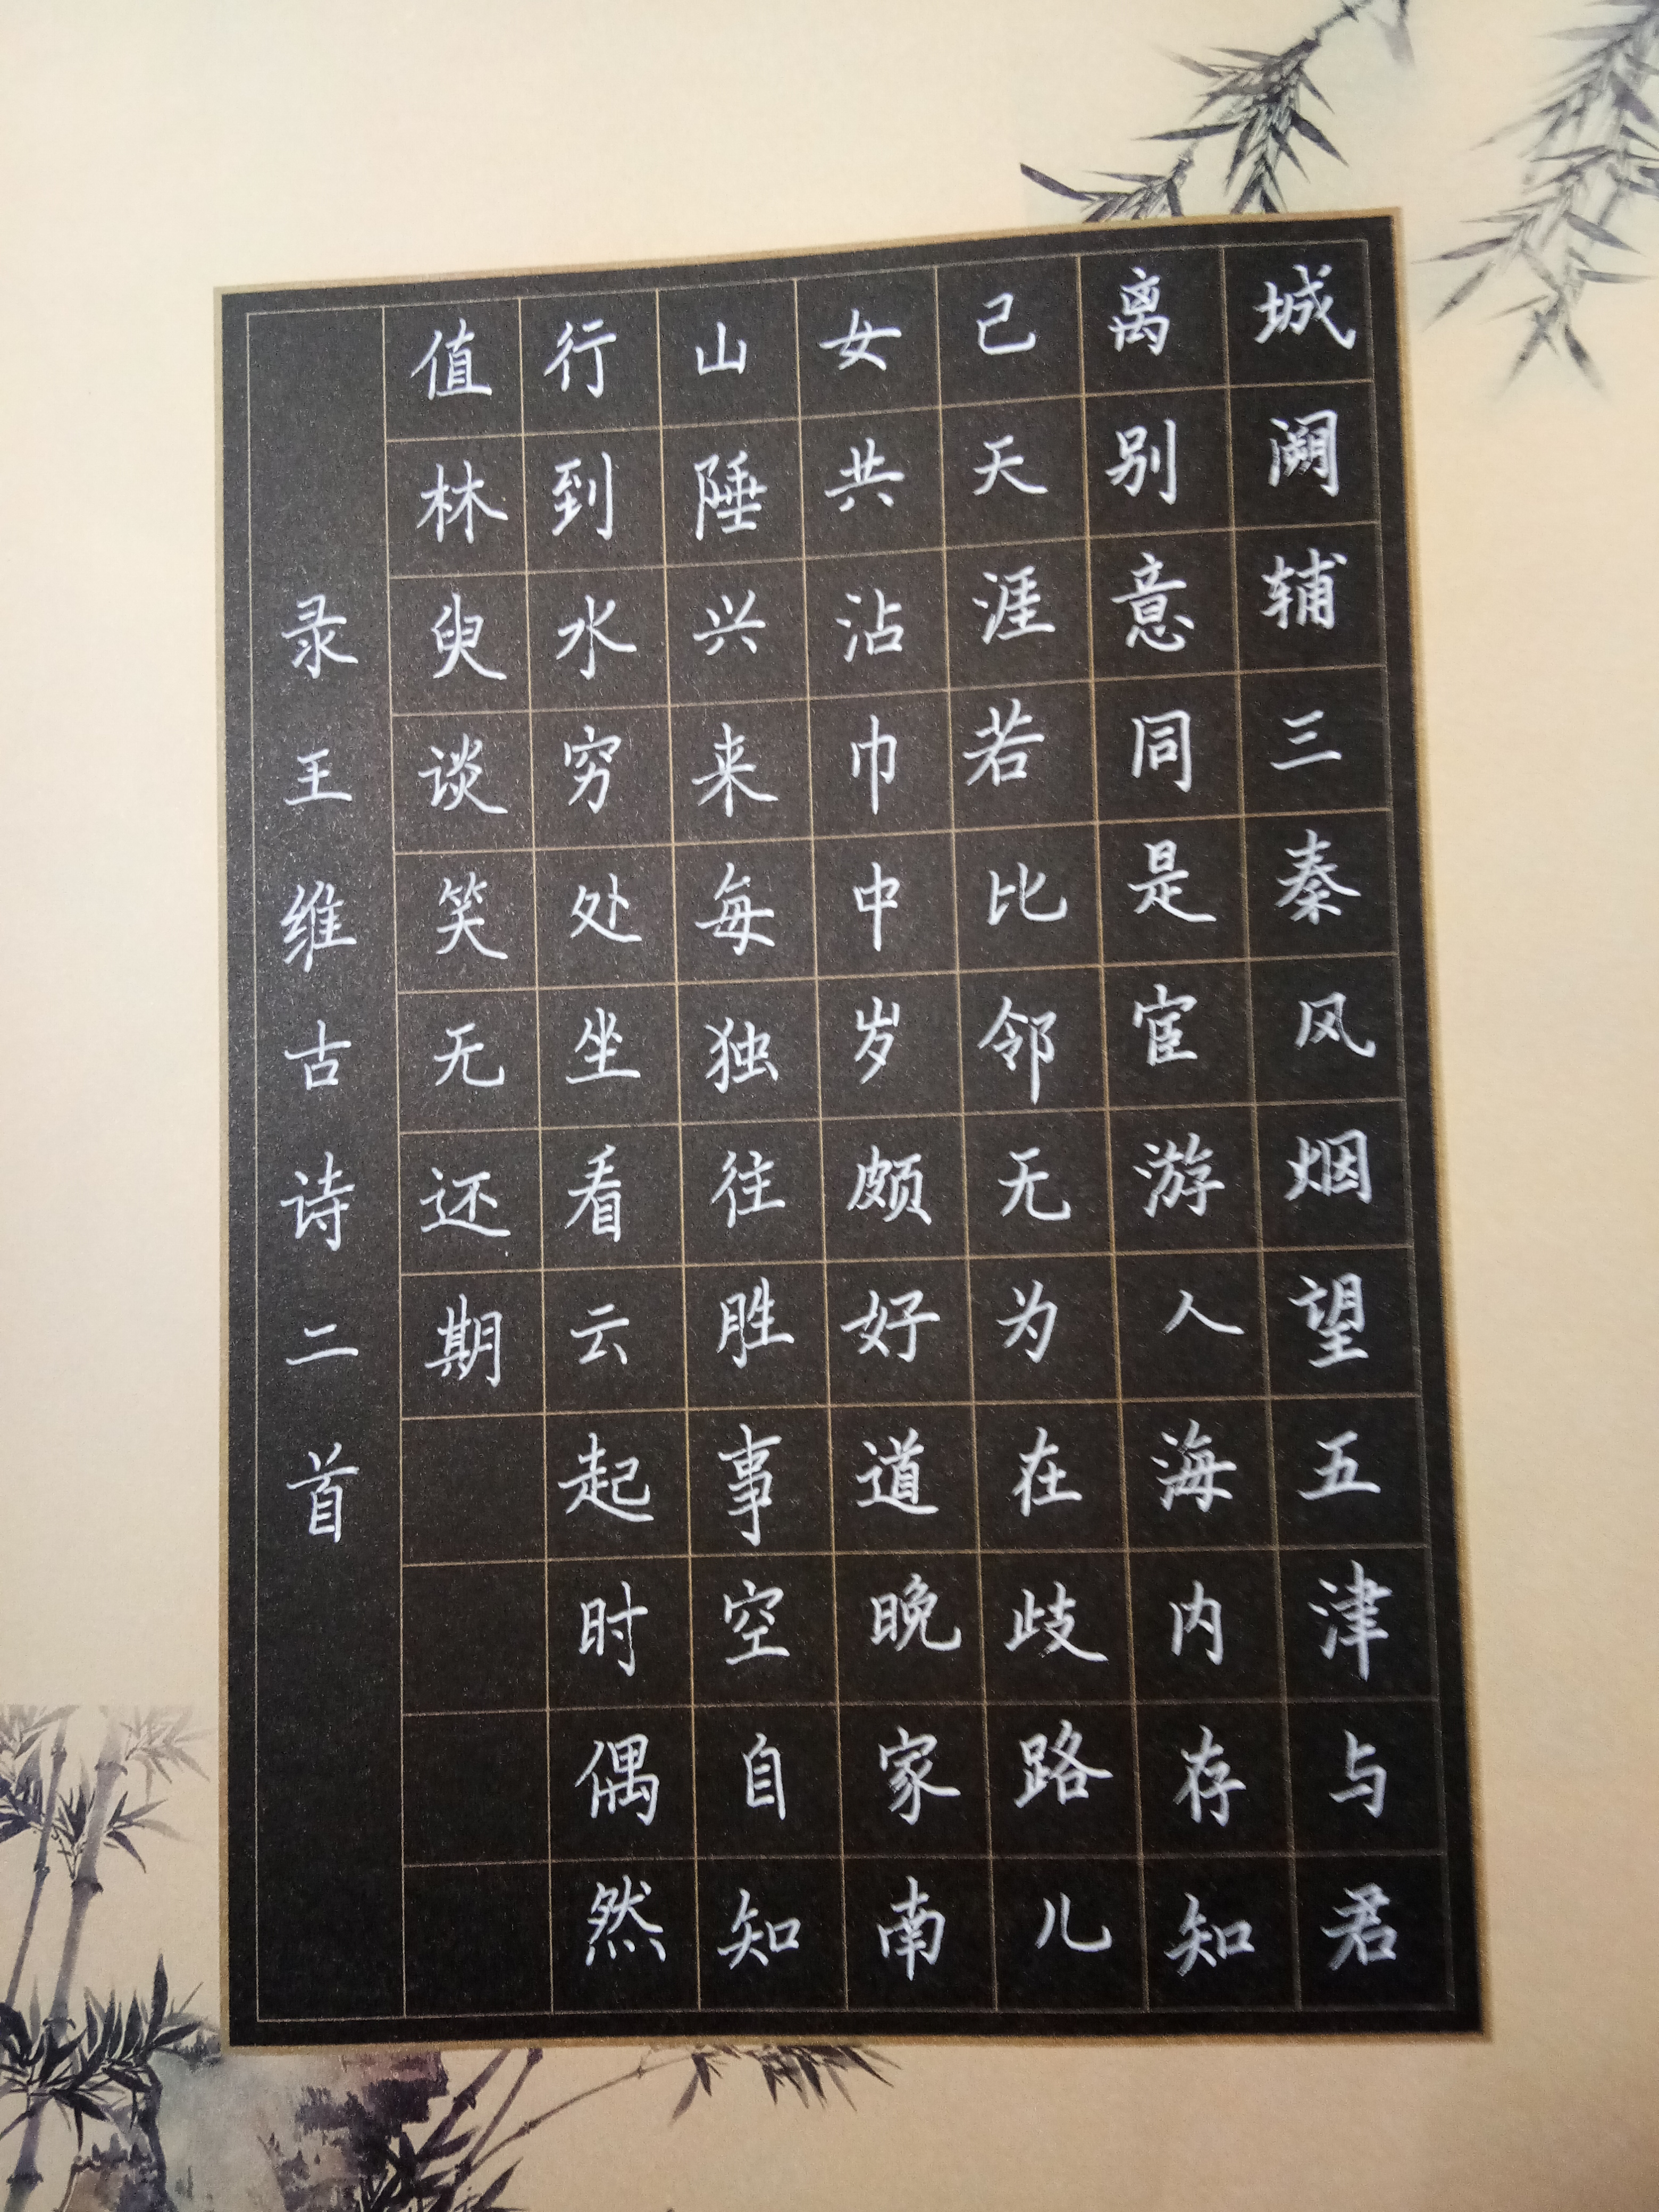 城阙辅三秦风烟望五津与君
离别意同是宦游人海内存知
己天涯若比邻无为在歧路儿
女共沾巾中岁颇好道晚家南
山陲兴来每独往胜事空自知
行到水穷处坐看云起时偶然
值林臾谈笑无还期
录王维古诗二首